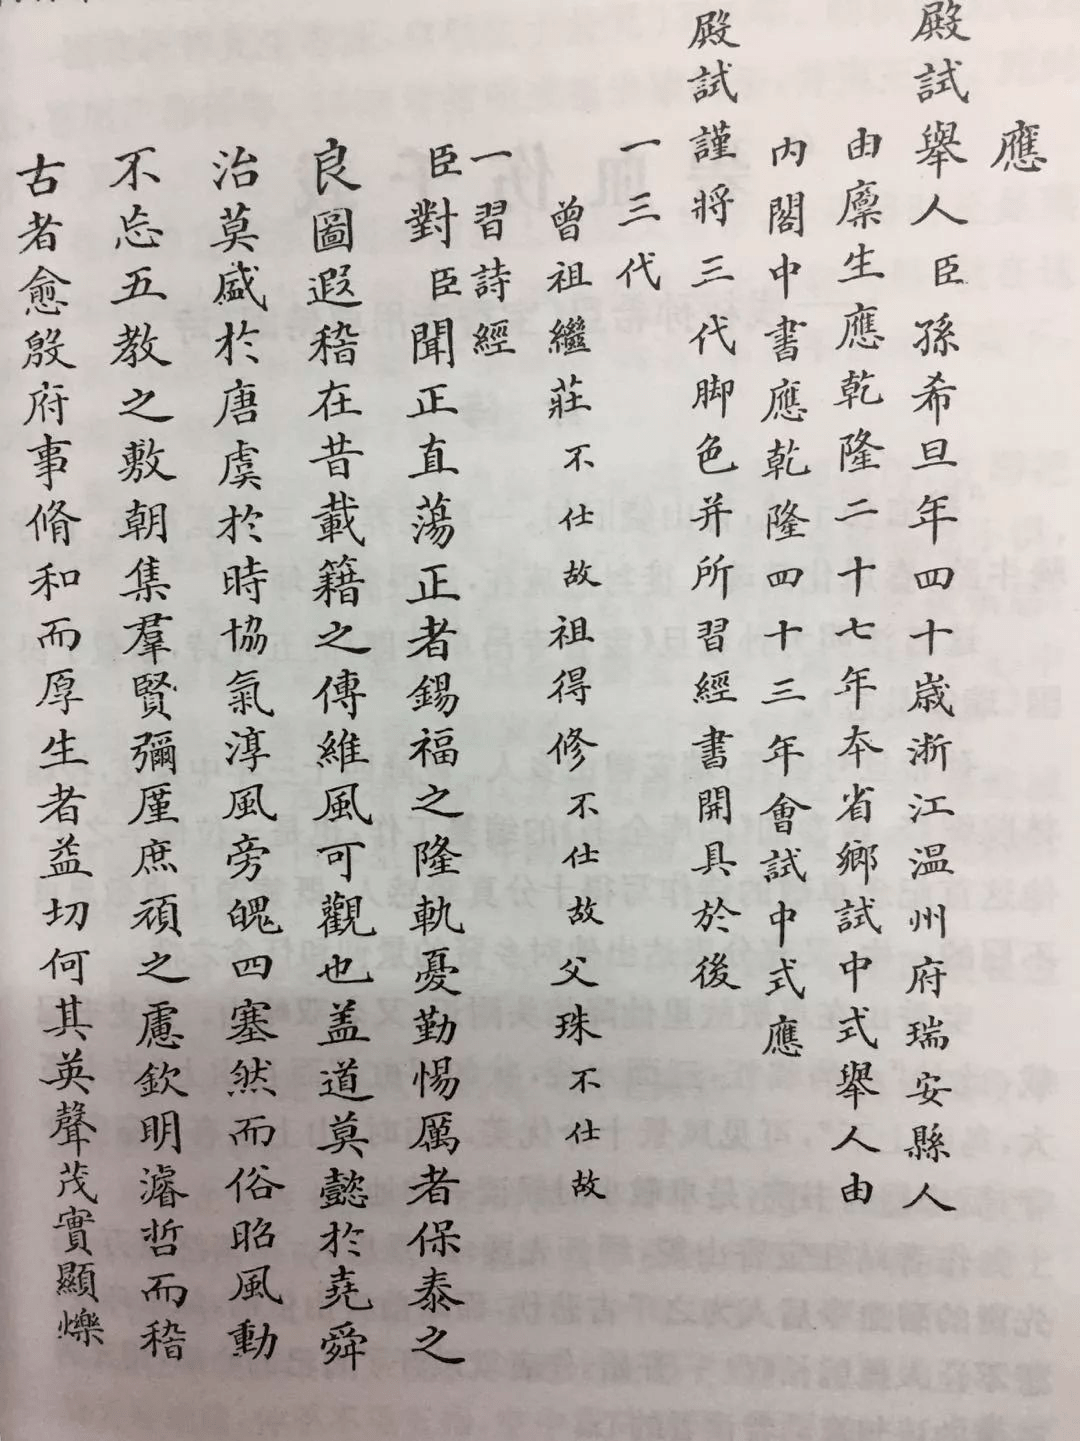 應
殿試舉人臣孫希旦年四十歲浙江温州府瑞安縣人
由廪生應乾隆二十七年本省鄉試中式舉人由
內閣中書應乾隆四十三年會試中式應
殿試謹將三代脚色并所習經書開具於後
一三代
曾祖繼莊不仕故祖得修不仕故父珠不仕故
一習詩經
臣對臣聞正直蕩正者錫福之隆軌憂勤惕厲者保泰之
良圖遐稽在昔載籍之傳維風可觀也盖道莫懿於堯舜
治莫盛於唐虞於時協氣淳風旁魄四塞然而俗昭風動
不忘五教之敷朝集羣賢彌厪庶頑之慮欽明濬哲而稽
古者愈殷府事脩和而厚生者益切何其英聲茂實顯爍